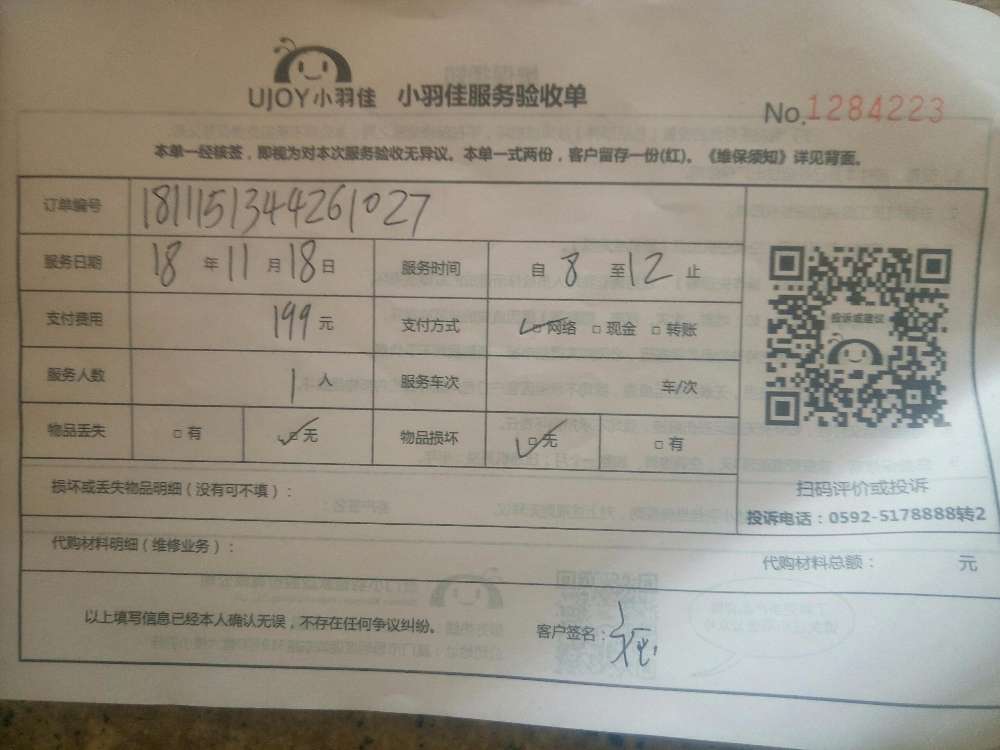 UJOY小羽佳 小羽佳服务验收单
No.1284223
本单一经核签，即视为对本次服务验收无异议。本单一式两份，客户留存一份(红)。《维保须知》详见背面。
订单编号 1811151344261027
服务日期 18 年 11 月 18 日 服务时间 自 8 至 12 止
投诉或建议
支付费用 199 元 支付方式 ☑网络 □现金 □转账
服务人数 1 人 服务车次 车/次
物品丢失 □有 ☑无 物品损坏 ☑无 □有
扫码评价或投诉
损坏或丢失物品明细（没有可不填）：
投诉电话：0592-5178888转2
代购材料明细（维修业务）：
代购材料总额： 元
以上填写信息已经本人确认无误，不存在任何争议纠纷。 客户签名：